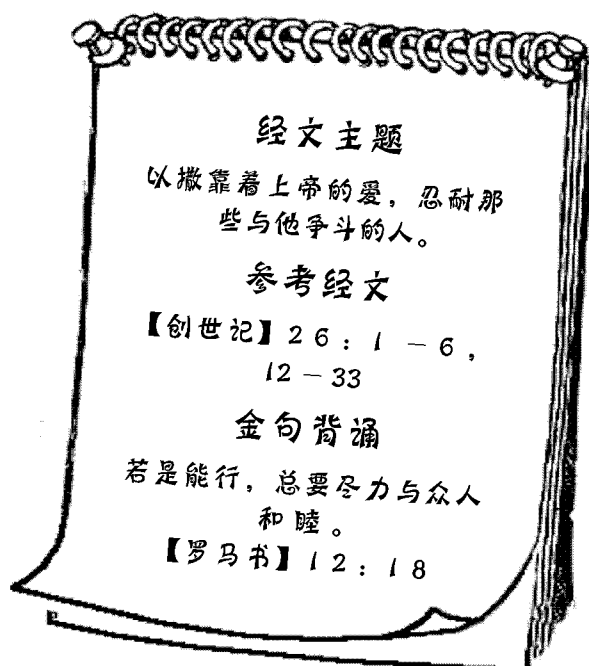 经文主题
以撒靠着上帝的爱，忍耐那
些与他争斗的人。
参考经文
【创世记】26：1－6，
12－33
金句背诵
若是能行，总要尽力与众人
和睦。
【罗马书】12：18